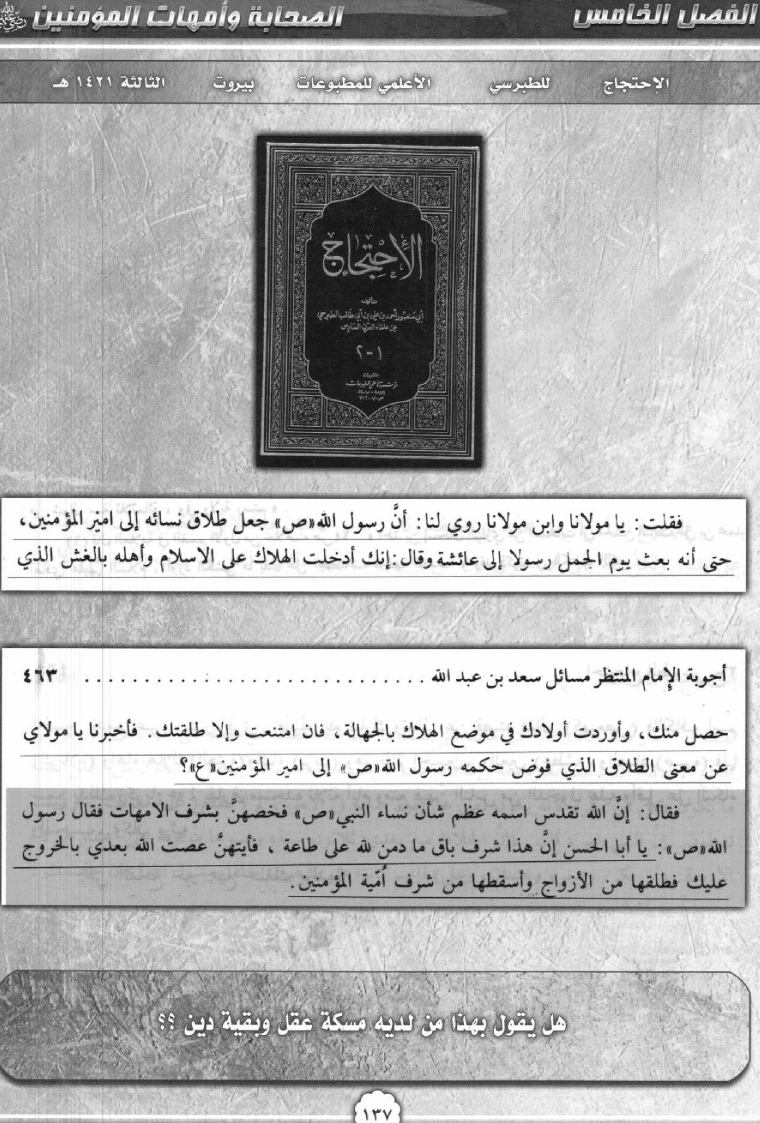 الفصل الخامس
الصحابة وأمهات المؤمنين
الإحتجاج للطبرسي الأعلمي للمطبوعات بيروت الثالثة ١٤٢١ هـ
الإحتجاج
تأليف
أبي منصور أحمد بن علي بن أبي طالب الطبرسي
من علماء القرن السادس
١-٢
منشورات
مؤسسة الأعلمي للمطبوعات
فقلت: يا مولانا وابن مولانا روي لنا: أنَّ رسول الله«ص» جعل طلاق نسائه إلى امير المؤمنين،
حتى أنه بعث يوم الجمل رسولا إلى عائشة وقال:إنك أدخلت الهلاك على الاسلام وأهله بالغش الذي
أجوبة الإمام المنتظر مسائل سعد بن عبد الله . . . . . . . . . . . . . . . . . . . . . . . . . . . . ٤٦٣
حصل منك، وأوردت أولادك في موضع الهلاك بالجهالة، فان امتنعت وإلا طلقتك. فأخبرنا يا مولاي
عن معنى الطلاق الذي فوض حكمه رسول الله«ص» إلى امير المؤمنين«ع»؟
فقال: إنَّ الله تقدس اسمه عظم شأن نساء النبي«ص» فخصهنَّ بشرف الامهات فقال رسول
الله«ص»: يا أبا الحسن إنَّ هذا شرف باق ما دمن لله على طاعة ، فأيتهنَّ عصت الله بعدي بالخروج
عليك فطلقها من الأزواج وأسقطها من شرف أُمّية المؤمنين.
هل يقول بهذا من لديه مسكة عقل وبقية دين ؟؟
١٣٧